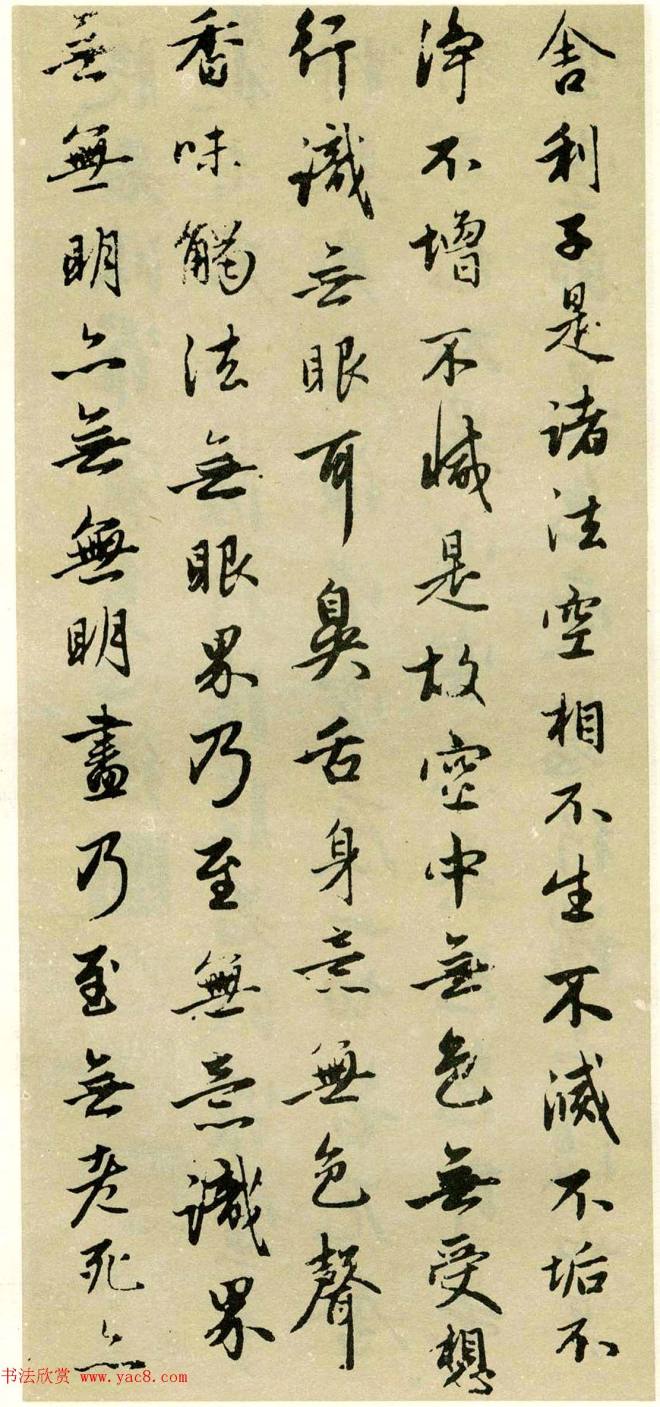 舍利子是諸法空相不生不滅不垢不
淨不增不減是故空中無色無受想
行識无眼耳鼻舌身意無色聲
香味觸法無眼界乃至無意識界
無無明亦無無明盡乃至無老死亦
书法欣赏 www.yac8.com